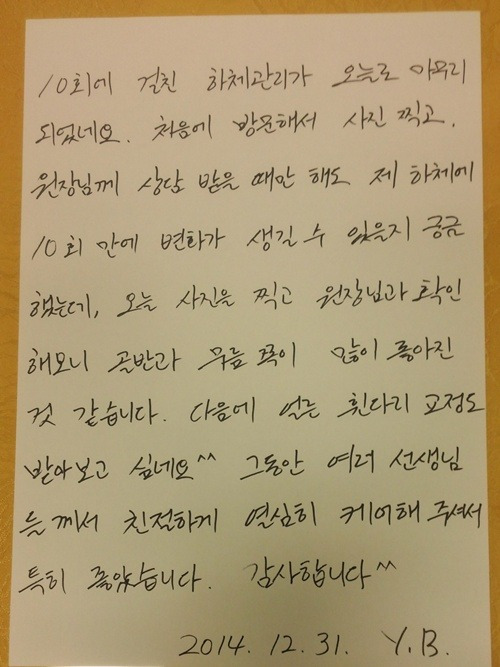 10회에 걸친 하체관리가 오늘로 마무리
되었네요. 처음에 방문해서 사진 찍고,
원장님께 상담 받을 때만 해도 제 하체에
10회 만에 변화가 생길 수 있을지 궁금
했는데, 오늘 사진을 찍고 원장님과 확인
해보니 골반과 무릎 쪽이 많이 좋아진
것 같습니다. 다음에 얼른 휜다리 교정도
받아보고 싶네요^^ 그동안 여러 선생님
들께서 친절하게 열심히 케어해 주셔서
특히 좋았습니다. 감사합니다^^
2014. 12. 31. Y.B.